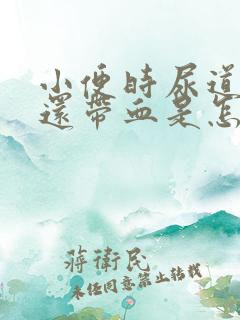 小便時尿道
還帶血是怎
蔣衛民
未經同意禁止轉載